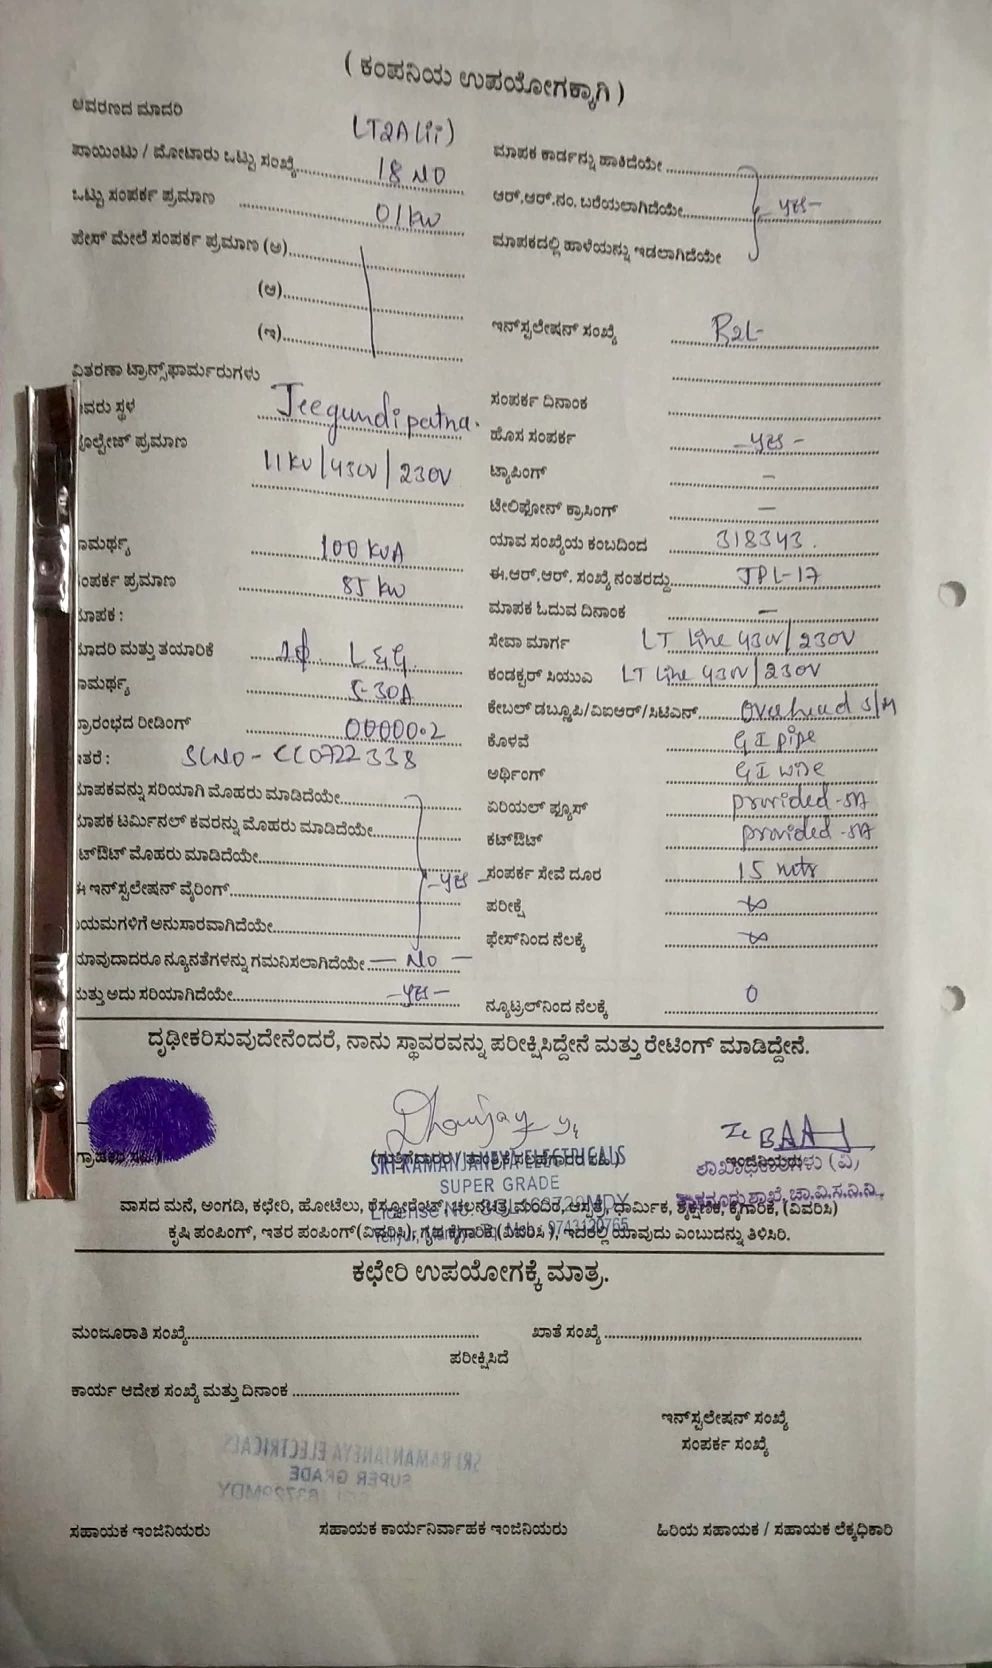 ( ಕಂಪನಿಯ ಉಪಯೋಗಕ್ಕಾಗಿ )
ಆವರಣದ ಮಾದರಿ LT2A(ii)
ಪಾಯಿಂಟು / ಮೋಟಾರು ಒಟ್ಟು ಸಂಖ್ಯೆ 18 NO
ಒಟ್ಟು ಸಂಪರ್ಕ ಪ್ರಮಾಣ 01KW
ಪೇಸ್ ಮೇಲೆ ಸಂಪರ್ಕ ಪ್ರಮಾಣ (ಅ)
(ಆ)
(ಇ)
ವಿತರಣಾ ಟ್ರಾನ್ಸ್‌ಫಾರ್ಮರುಗಳು
ಇವರು ಸ್ಥಳ Jeegundipatna.
ವೋಲ್ಟೇಜ್ ಪ್ರಮಾಣ
11KV/430V/230V
ಸಾಮರ್ಥ್ಯ 100 KVA
ಸಂಪರ್ಕ ಪ್ರಮಾಣ 85 KW
ಮಾಪಕ :
ಮಾದರಿ ಮತ್ತು ತಯಾರಿಕೆ 1φ L&G.
ಸಾಮರ್ಥ್ಯ 5-30A
ಪ್ರಾರಂಭದ ರೀಡಿಂಗ್ 00000.2
ಇತರೆ : SLNO - CC0722338
ಮಾಪಕವನ್ನು ಸರಿಯಾಗಿ ಮೊಹರು ಮಾಡಿದೆಯೇ
ಮಾಪಕ ಟರ್ಮಿನಲ್ ಕವರನ್ನು ಮೊಹರು ಮಾಡಿದೆಯೇ
ಕಟ್‌ಔಟ್ ಮೊಹರು ಮಾಡಿದೆಯೇ
ಈ ಇನ್‌ಸ್ಟಲೇಷನ್ ವೈರಿಂಗ್ - yes -
ನಿಯಮಗಳಿಗೆ ಅನುಸಾರವಾಗಿದೆಯೇ
ಯಾವುದಾದರೂ ನ್ಯೂನತೆಗಳನ್ನು ಗಮನಿಸಲಾಗಿದೆಯೇ - NO -
ಮತ್ತು ಅದು ಸರಿಯಾಗಿದೆಯೇ - yes -
ಮಾಪಕ ಕಾರ್ಡನ್ನು ಹಾಕಿದೆಯೇ
ಆರ್.ಆರ್.ನಂ. ಬರೆಯಲಾಗಿದೆಯೇ - yes -
ಮಾಪಕದಲ್ಲಿ ಹಾಳೆಯನ್ನು ಇಡಲಾಗಿದೆಯೇ
ಇನ್‌ಸ್ಟಲೇಷನ್ ಸಂಖ್ಯೆ
ಸಂಪರ್ಕ ದಿನಾಂಕ
ಹೊಸ ಸಂಪರ್ಕ - yes -
ಟ್ಯಾಪಿಂಗ್ -
ಟೇಲಿಫೋನ್ ಕ್ರಾಸಿಂಗ್ -
ಯಾವ ಸಂಖ್ಯೆಯ ಕಂಬದಿಂದ 318343.
ಈ.ಆರ್.ಆರ್. ಸಂಖ್ಯೆ ನಂತರದ್ದು JPL-17
ಮಾಪಕ ಓದುವ ದಿನಾಂಕ -
ಸೇವಾ ಮಾರ್ಗ LT Line 430V/230V
ಕಂಡಕ್ಟರ್ ಸಿಯುಎ LT Line 430V/230V
ಕೇಬಲ್ ಡಬ್ಲ್ಯೂಪಿ/ವಿಐಆರ್/ಸಿಟಿಎಸ್ Overhead S/M
ಕೊಳವೆ GI pipe
ಅರ್ಥಿಂಗ್ GI wire
ಏರಿಯಲ್ ಫ್ಯೂಸ್ provided-5A
ಕಟ್‌ಔಟ್ provided-5A
ಸಂಪರ್ಕ ಸೇವೆ ದೂರ 15 mtr
ಪರೀಕ್ಷೆ ∞
ಫೇಸ್‌ನಿಂದ ನೆಲಕ್ಕೆ ∞
ನ್ಯೂಟ್ರಲ್‌ನಿಂದ ನೆಲಕ್ಕೆ 0
ದೃಢೀಕರಿಸುವುದೇನೆಂದರೆ, ನಾನು ಸ್ಥಾವರವನ್ನು ಪರೀಕ್ಷಿಸಿದ್ದೇನೆ ಮತ್ತು ರೇಟಿಂಗ್ ಮಾಡಿದ್ದೇನೆ.
SRI RAMANJANEYA ELECTRICALS
SUPER GRADE
ವಾಸದ ಮನೆ, ಅಂಗಡಿ, ಕಛೇರಿ, ಹೋಟೆಲು, ರೆಸ್ಟೋರೆಂಟ್, ಚಲನಚಿತ್ರ ಮಂದಿರ, ಆಸ್ಪತ್ರೆ, ಧಾರ್ಮಿಕ, ಶೈಕ್ಷಣಿಕ, ಕೈಗಾರಿಕೆ, (ವಿವರಿಸಿ)
ಕೃಷಿ ಪಂಪಿಂಗ್, ಇತರ ಪಂಪಿಂಗ್ (ವಿವರಿಸಿ), ಗೃಹ ಕೈಗಾರಿಕೆ (ವಿವರಿಸಿ), ಇದರಲ್ಲಿ ಯಾವುದು ಎಂಬುದನ್ನು ತಿಳಿಸಿರಿ.
ಕಛೇರಿ ಉಪಯೋಗಕ್ಕೆ ಮಾತ್ರ.
ಮಂಜೂರಾತಿ ಸಂಖ್ಯೆ ಖಾತೆ ಸಂಖ್ಯೆ
ಪರೀಕ್ಷಿಸಿದೆ
ಕಾರ್ಯ ಆದೇಶ ಸಂಖ್ಯೆ ಮತ್ತು ದಿನಾಂಕ
ಇನ್‌ಸ್ಟಲೇಷನ್ ಸಂಖ್ಯೆ
ಸಂಪರ್ಕ ಸಂಖ್ಯೆ
ಸಹಾಯಕ ಇಂಜಿನಿಯರು ಸಹಾಯಕ ಕಾರ್ಯನಿರ್ವಾಹಕ ಇಂಜಿನಿಯರು ಹಿರಿಯ ಸಹಾಯಕ / ಸಹಾಯಕ ಲೆಕ್ಕಧಿಕಾರಿ